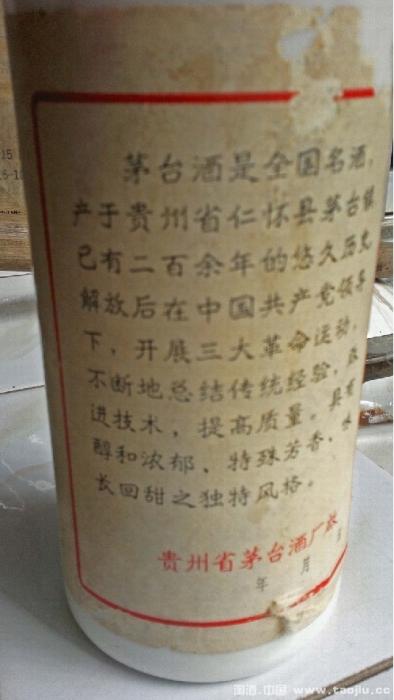 茅台酒是全国名酒，
产于贵州省仁怀县茅台镇
已有二百余年的悠久历史
解放后在中国共产党领导
下，开展三大革命运动，
不断地总结传统经验，改
进技术，提高质量。具有
醇和浓郁、特殊芳香、味
长回甜之独特风格。
贵州省茅台酒厂
年 月 日
淘酒.中国 www.taojiu.cc